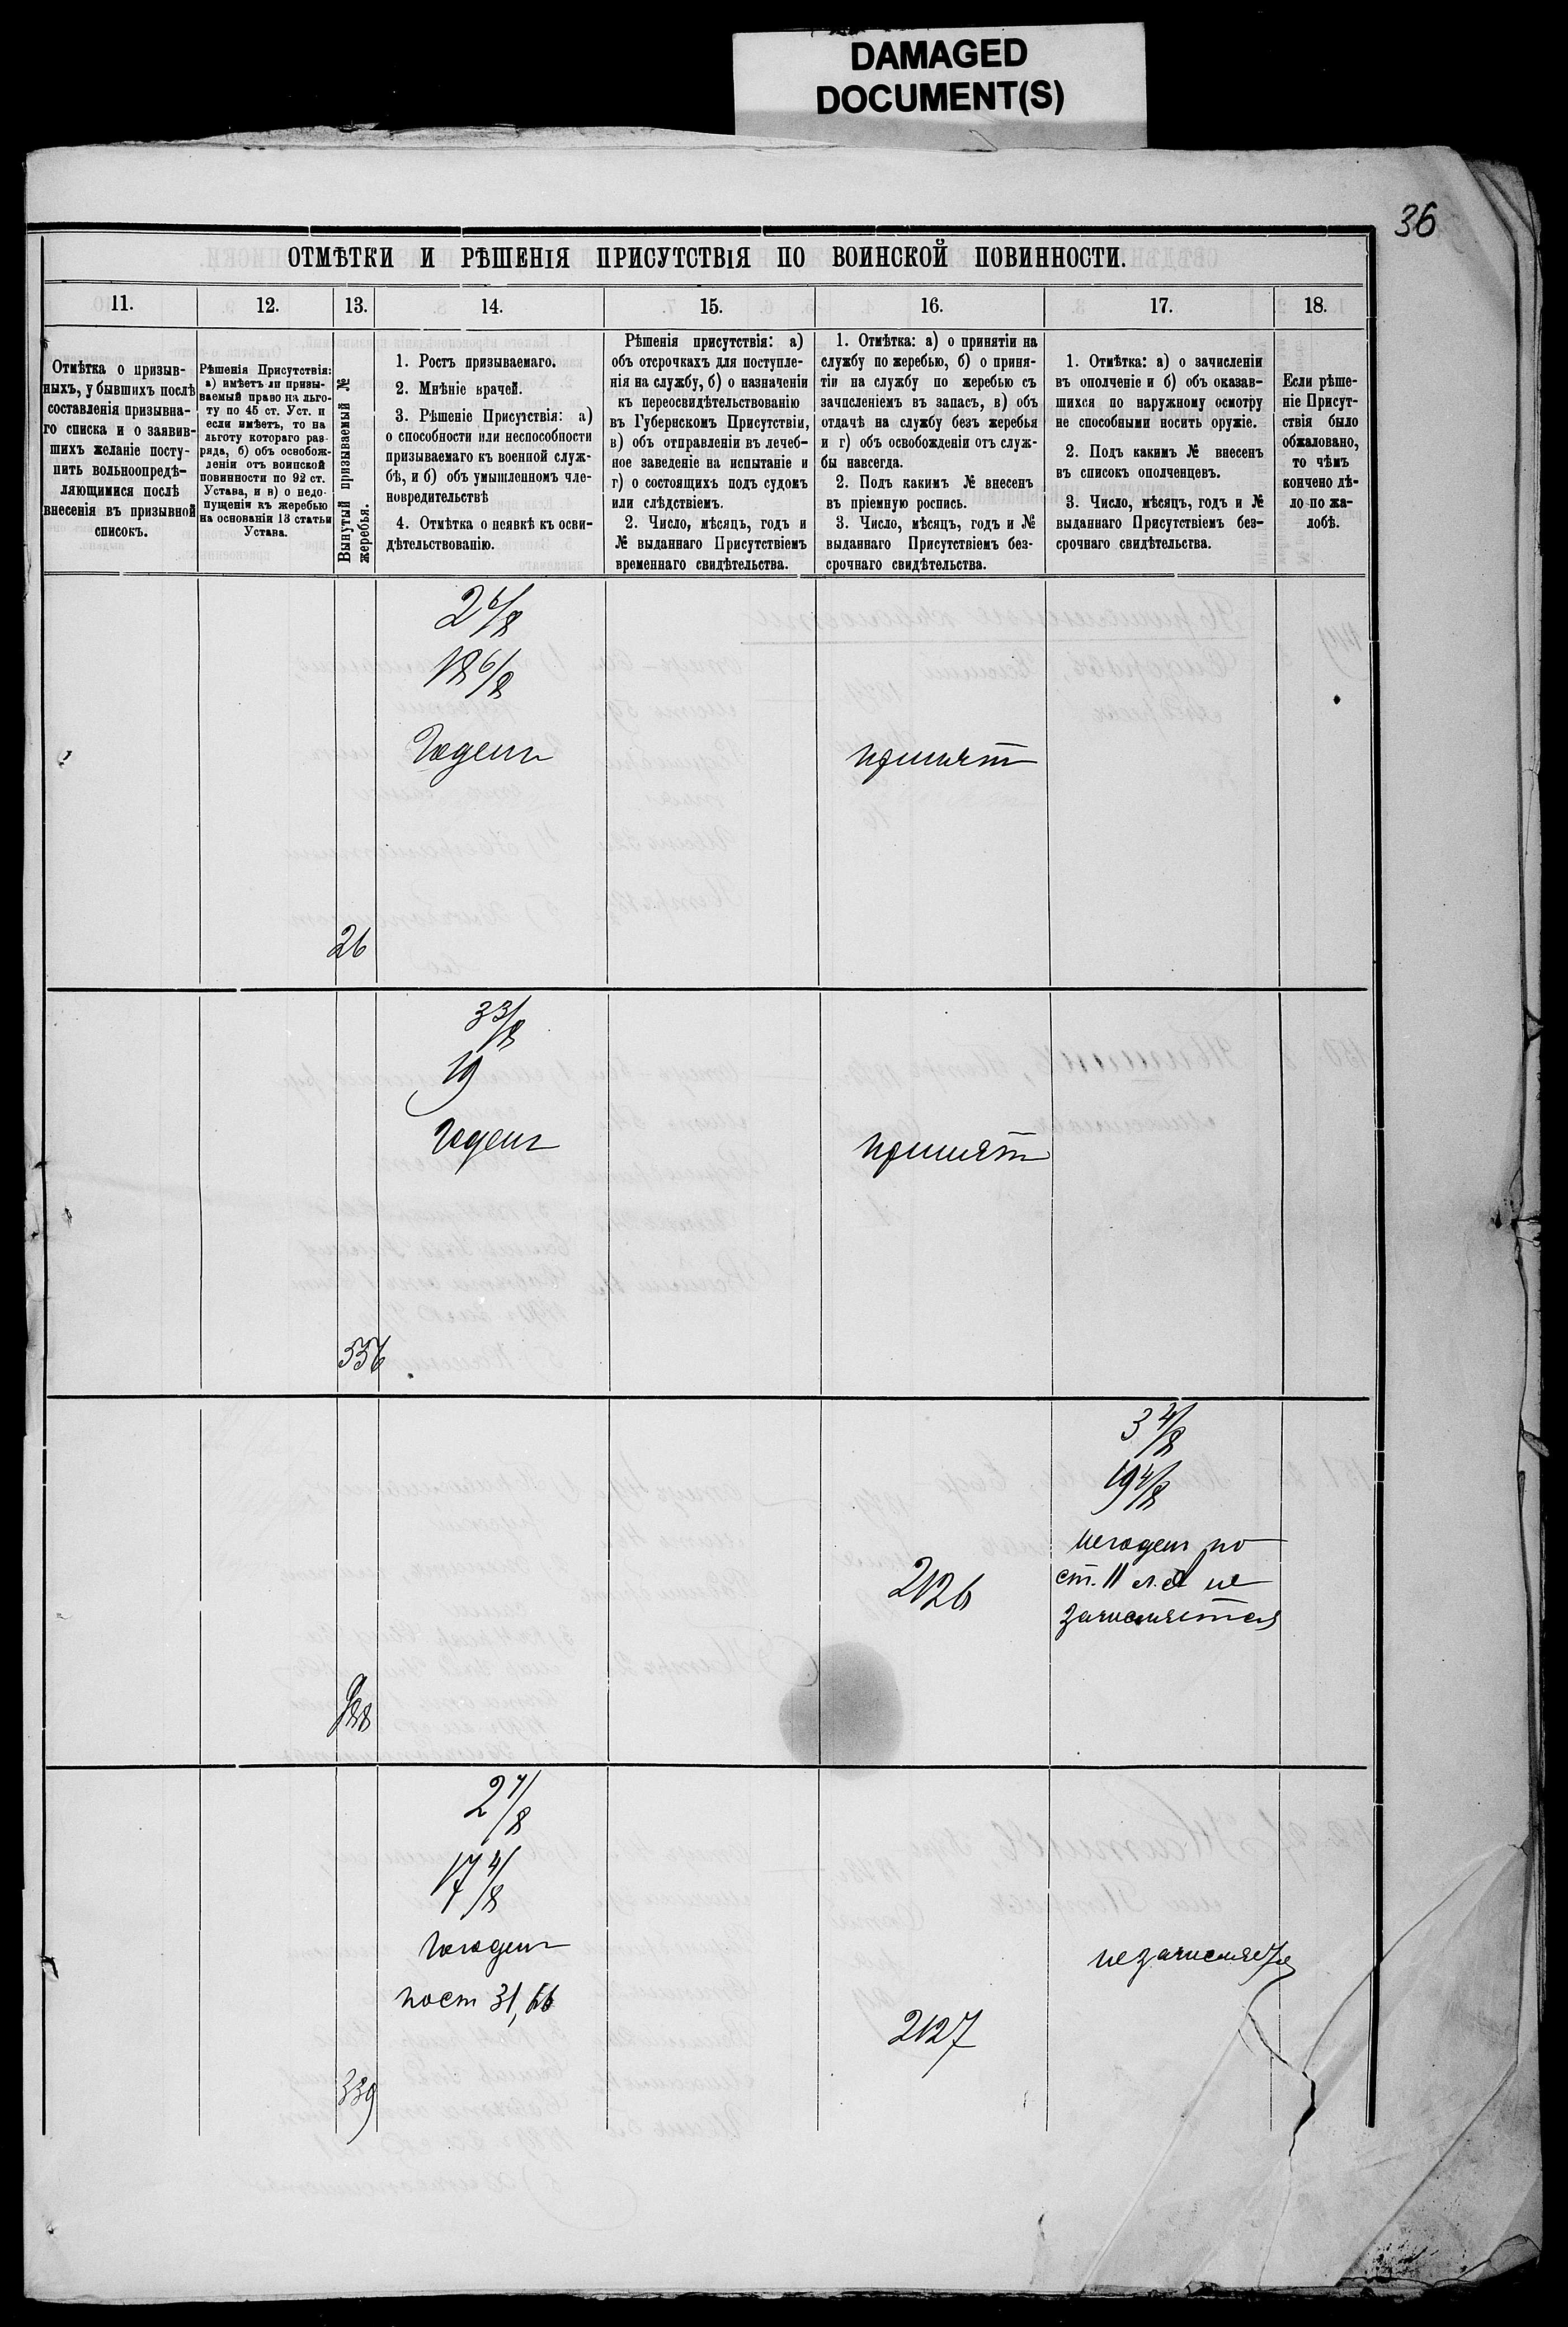 DAMAGED
DOCUMENT(S)
36
ОТМѢТКИ И РѢШЕНІЯ ПРИСУТСТВІЯ ПО ВОИНСКОЙ ПОВИННОСТИ.
11.
12.
13.
14.
15.
16.
17.
18.
Отмѣтка о призыв-
ныхъ, у бывшихъ послѣ
составленія призывна-
го списка и о заявив-
шихъ желаніе посту-
пить вольноопредѣ-
ляющимися послѣ
внесенія въ призывной
списокъ.
Рѣшенія Присутствія:
а) имѣетъ ли призы-
ваемый право на льго-
ту по 45 ст. Уст. и
если имѣетъ, то на
льготу котораго раз-
ряда, б) объ освобож-
деніи отъ воинской
повинности по 92 ст.
Устава, и в) о недо-
пущеніи къ жеребью
на основаніи 13 статьи
Устава.
Вынутый призываемый №
жеребья.
1. Ростъ призываемаго.
2. Мнѣніе врачей.
3. Рѣшеніе Присутствія: а)
о способности или неспособности
призываемаго къ военной служ-
бѣ, и б) объ умышленномъ чле-
новредительствѣ
4. Отмѣтка о неявкѣ къ осви-
дѣтельствованію.
Рѣшенія присутствія: а)
объ отсрочкахъ для поступле-
нія на службу, б) о назначеніи
къ переосвидѣтельствованію
въ Губернскомъ Присутствіи,
в) объ отправленіи въ лечеб-
ное заведеніе на испытаніе и
г) о состоящихъ подъ судомъ
или слѣдствіемъ.
2. Число, мѣсяцъ, годъ и
№ выданнаго Присутствіемъ
временнаго свидѣтельства.
1. Отмѣтка: а) о принятіи на
службу по жеребью, б) о приня-
тіи на службу по жеребью съ
зачисленіемъ въ запасъ, в) объ
отдачѣ на службу безъ жеребья
и г) объ освобожденіи отъ служ-
бы навсегда.
2. Подъ какимъ № внесенъ
въ пріемную роспись.
3. Число, мѣсяцъ, годъ и №
выданнаго Присутствіемъ без-
срочнаго свидѣтельства.
1. Отмѣтка: а) о зачисленіи
въ ополченіе и б) объ оказав-
шихся по наружному осмотру
не способными носить оружіе.
2. Подъ какимъ № внесенъ
въ списокъ ополченцевъ.
3. Число, мѣсяцъ, годъ и №
выданнаго Присутствіемъ без-
срочнаго свидѣтельства.
Если рѣше-
ніе Присут-
ствія было
обжаловано,
то чѣмъ
кончено дѣ-
ло по жа-
лобѣ.
2 6/8
18 6/8
Годенъ
принят
26
3 3/8
19
Годенъ
принят
556
3 4/8
19 4/8
негоденъ по
ст. 11 л. А не
зачисляется
2126
988
2 7/8
17 4/8
Негоденъ
по ст 31,
незачисляется
2127
339